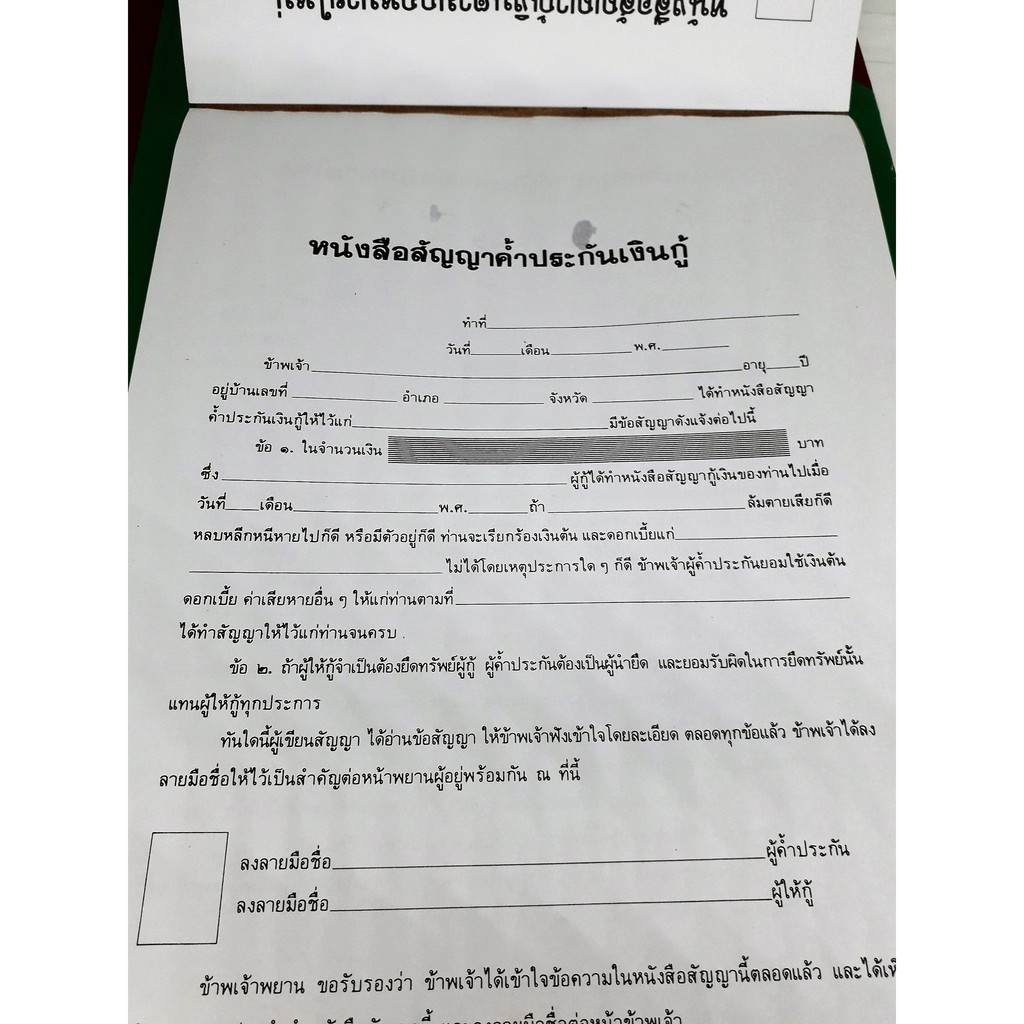 หนังสือสัญญาค้ำประกันเงินกู้
ทำที่
วันที่ เดือน พ.ศ.
ข้าพเจ้า อายุ ปี
อยู่บ้านเลขที่ อำเภอ จังหวัด ได้ทำหนังสือสัญญา
ค้ำประกันเงินกู้ให้ไว้แก่ มีข้อสัญญาดังแจ้งต่อไปนี้
ข้อ ๑. ในจำนวนเงิน บาท
ซึ่ง ผู้กู้ได้ทำหนังสือสัญญากู้เงินของท่านไปเมื่อ
วันที่ เดือน พ.ศ. ถ้า ล้มตายเสียก็ดี
หลบหลีกหนีหายไปก็ดี หรือมีตัวอยู่ก็ดี ท่านจะเรียกร้องเงินต้น และดอกเบี้ยแก่
ไม่ได้โดยเหตุประการใด ๆ ก็ดี ข้าพเจ้าผู้ค้ำประกันยอมใช้เงินต้น
ดอกเบี้ย ค่าเสียหายอื่น ๆ ให้แก่ท่านตามที่
ได้ทำสัญญาให้ไว้แก่ท่านจนครบ .
ข้อ ๒. ถ้าผู้ให้กู้จำเป็นต้องยึดทรัพย์ผู้กู้ ผู้ค้ำประกันต้องเป็นผู้นำยึด และยอมรับผิดในการยึดทรัพย์นั้น
แทนผู้ให้กู้ทุกประการ
ทันใดนี้ผู้เขียนสัญญา ได้อ่านข้อสัญญา ให้ข้าพเจ้าฟังเข้าใจโดยละเอียด ตลอดทุกข้อแล้ว ข้าพเจ้าได้ลง
ลายมือชื่อให้ไว้เป็นสำคัญต่อหน้าพยานผู้อยู่พร้อมกัน ณ ที่นี้
ลงลายมือชื่อ ผู้ค้ำประกัน
ลงลายมือชื่อ ผู้ให้กู้
ข้าพเจ้าพยาน ขอรับรองว่า ข้าพเจ้าได้เข้าใจข้อความในหนังสือสัญญานี้ตลอดแล้ว และได้